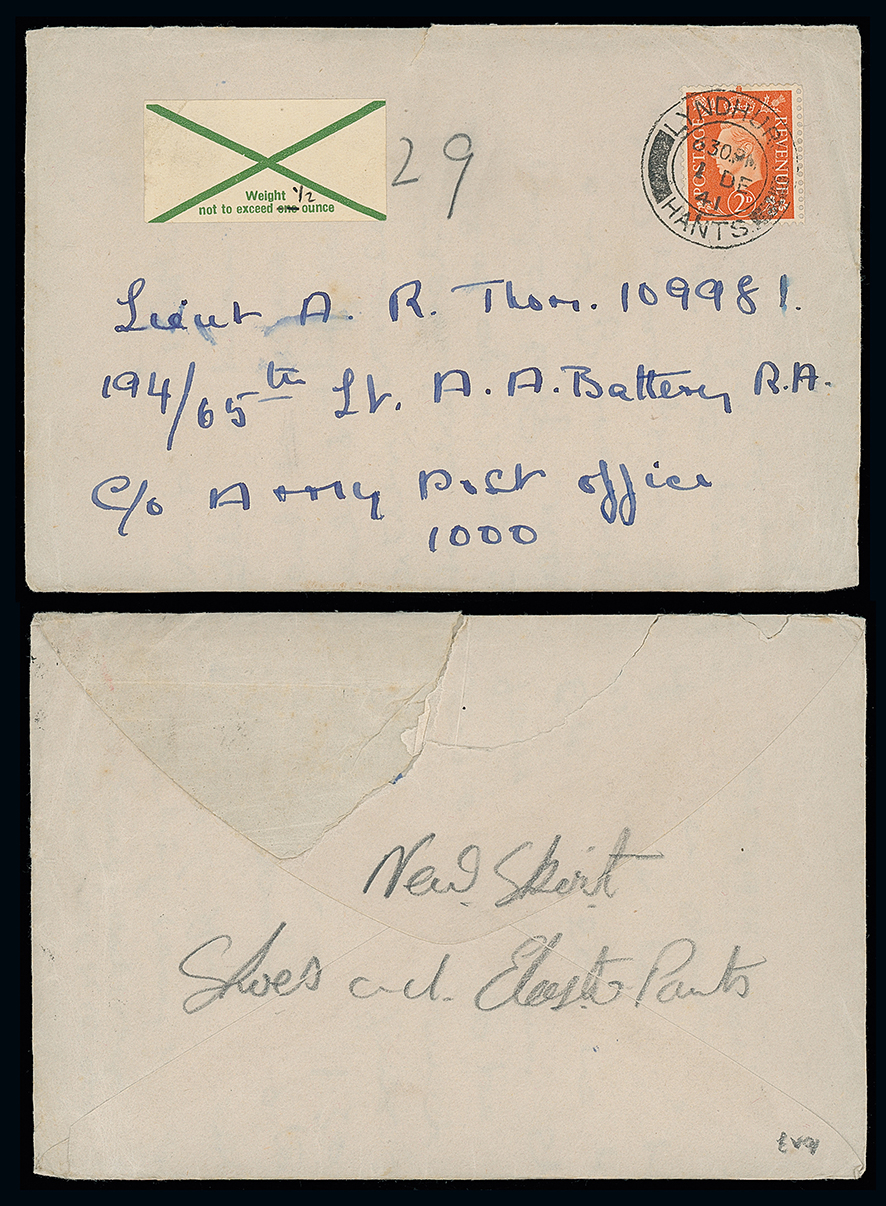 Weight 1/2
not to exceed one ounce
29
LYNDHUR
30 PM
DE
41
HANTS.
POSTAGE
REVENUE
2D
Lieut A. R. Thom. 109981.
194/65th Lt. A. A. Battery R.A.
C/o Army Post office
1000
New Skirt
Shoes and Elastic Pants